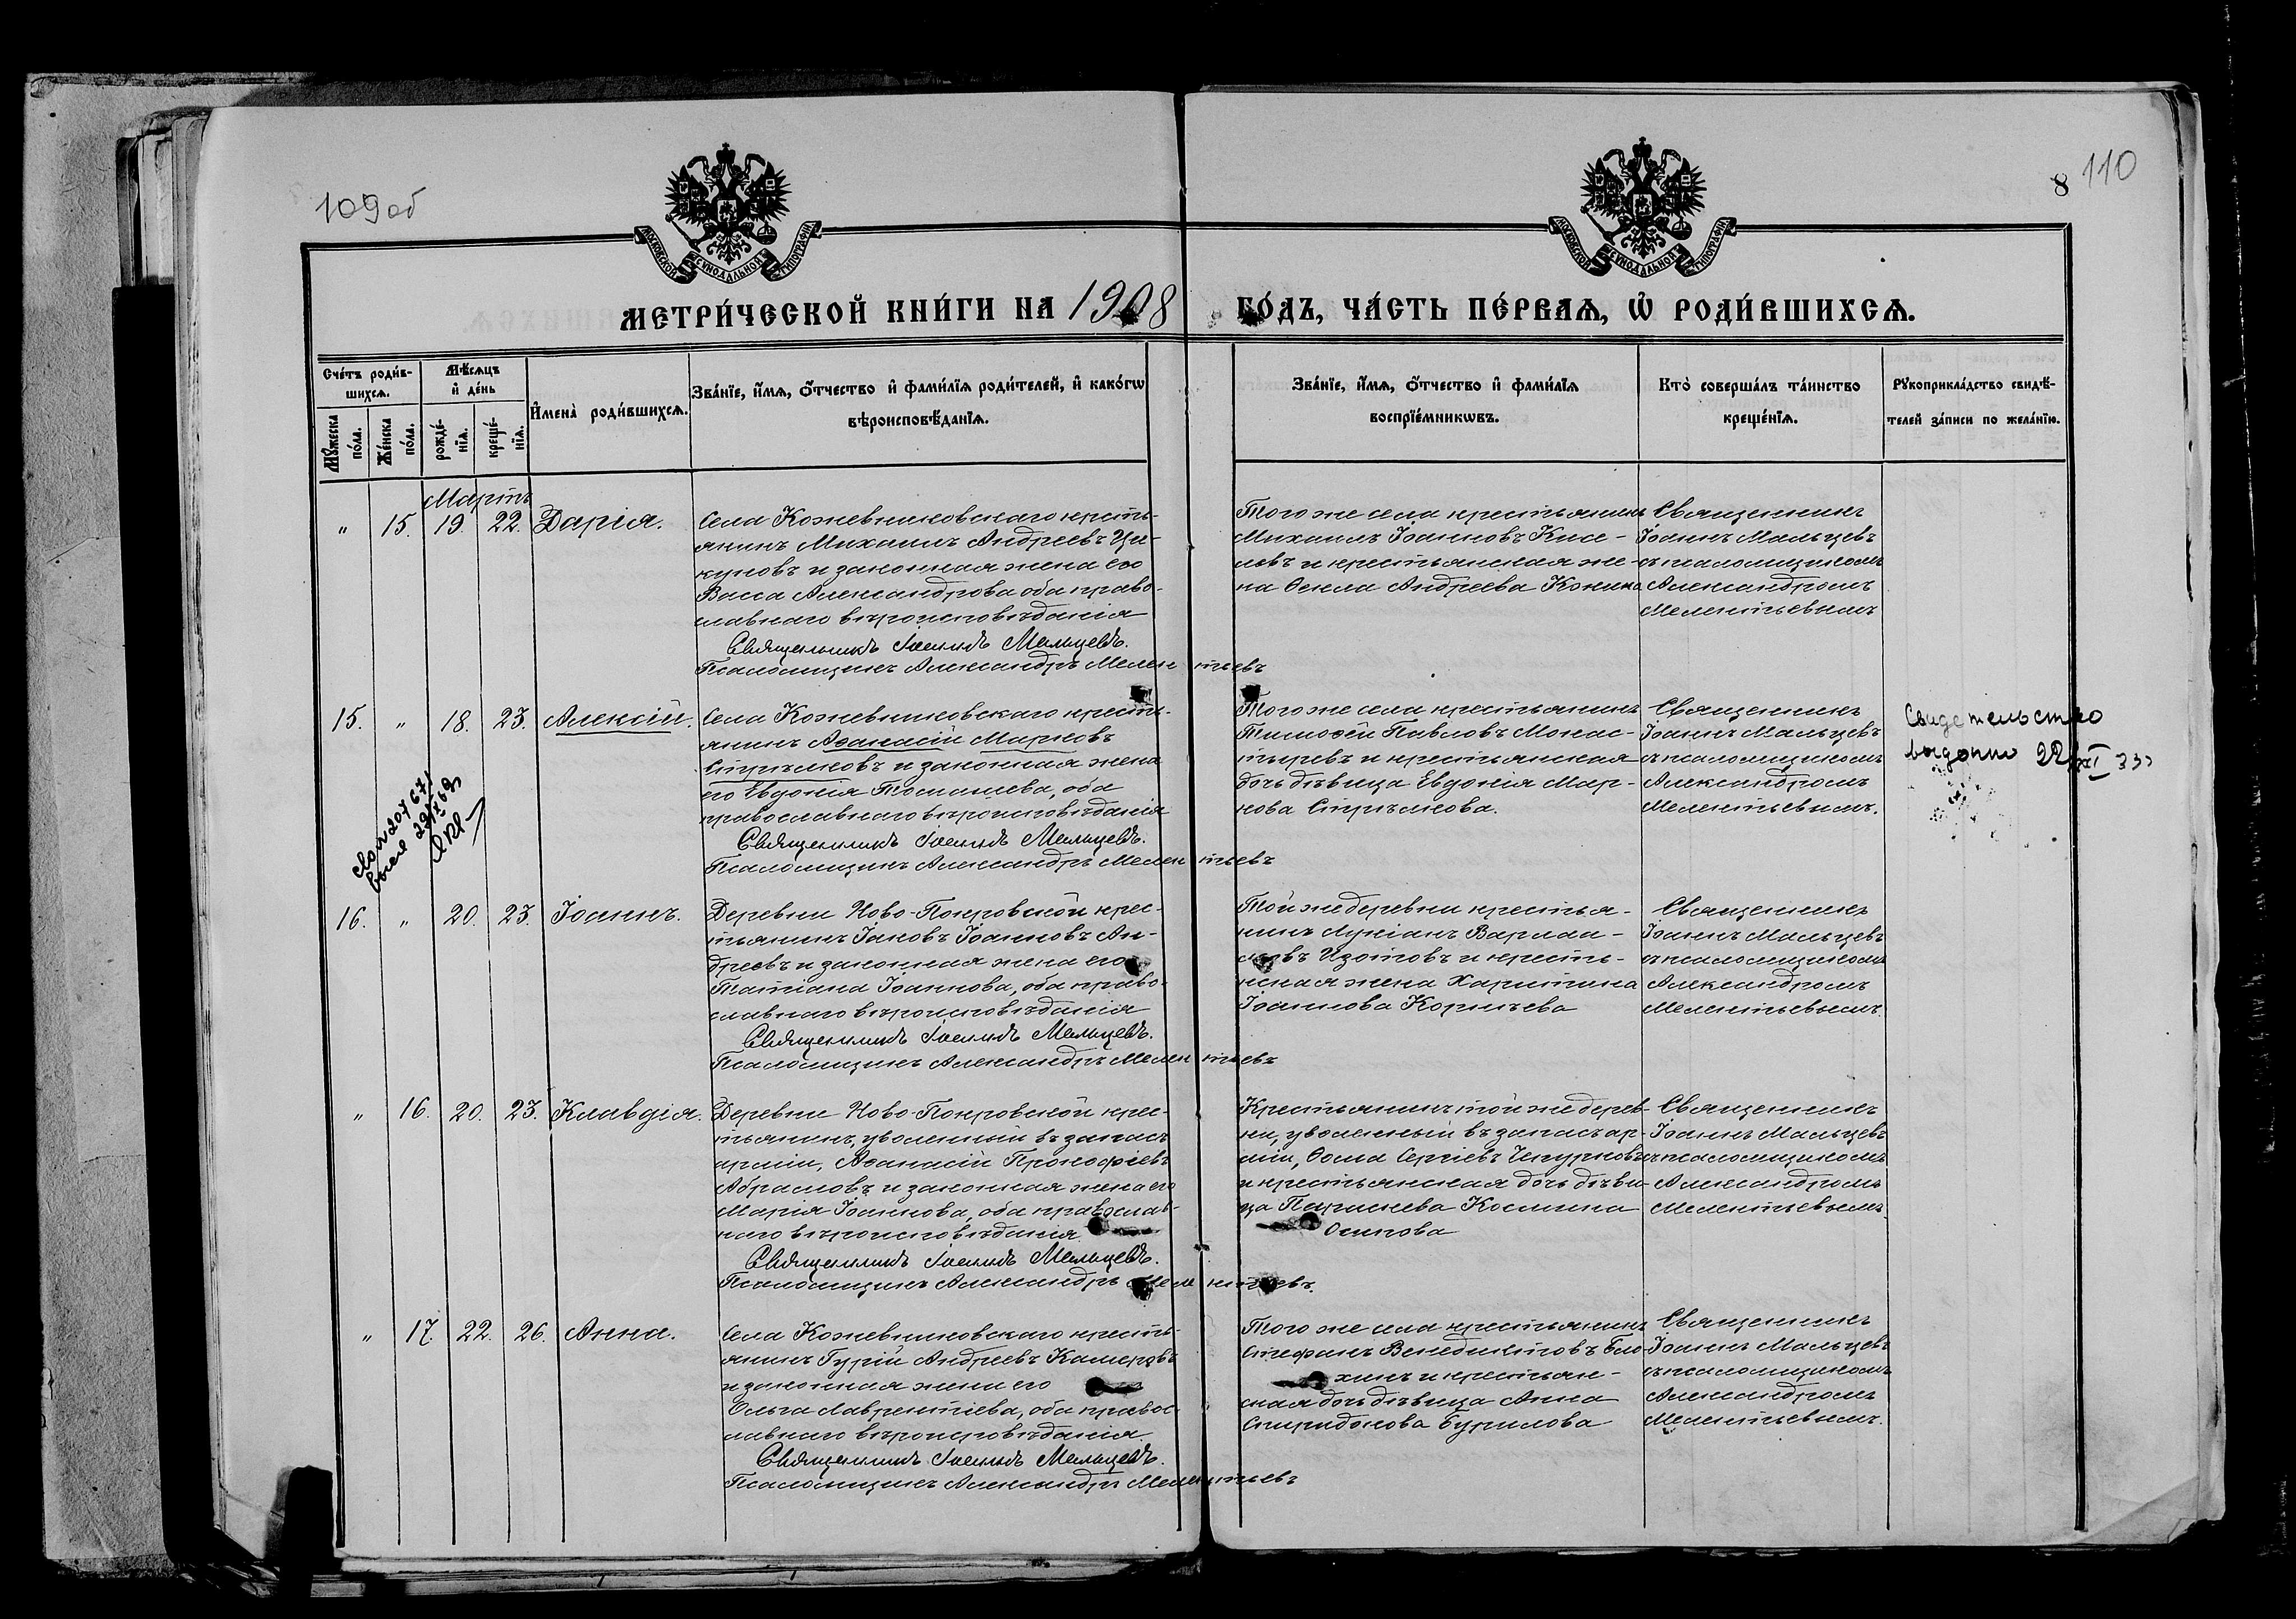 109 об
8
110
МОСКОВСКОЙ СѴНОДАЛЬНОЙ ТИПОГРАФІИ
МОСКОВСКОЙ СѴНОДАЛЬНОЙ ТИПОГРАФІИ
МЕТРИ́ЧЕСКОЙ КНИ́ГИ НА 1908 ГО́ДЪ, ЧА́СТЬ ПЕ́РВАѦ, Ѡ҆ РОДИ́ВШИХСѦ.
Сче́тъ роди́в-
шихсѧ.
Мꙋ́жеска по́ла.
Же́нска по́ла.
Мѣ́сѧцъ
и҆ де́нь
рожде́-
нїѧ.
креще́-
нїѧ.
И҆мена̀ роди́вшихсѧ.
Зва́нїе, и҆́мѧ, ѻ҆́тчество и҆ фами́лїѧ роди́телей, и҆ како́гѡ
вѣроисповѣ́данїѧ.
Зва́нїе, и҆́мѧ, ѻ҆́тчество и҆ фами́лїѧ
воспрїе́мникѡвъ.
Кто̀ соверша́лъ та́инство
креще́нїѧ.
Рꙋкоприкла́дство свидѣ́-
телей за́писи по жела́нїю.
Мартъ
" 15. 19. 22. Дарія.
Села Кожевниковскаго кресть-
янинъ Михаилъ Андреевъ Ци-
куновъ и законная жена его
Васса Александрова оба право-
славнаго вѣроисповѣданія
Священникъ Іоаннъ Мальцевъ.
Псаломщикъ Александръ Мелентьевъ
Того же села крестьянинъ
Михаилъ Іоанновъ Кисе-
левъ и крестьянская же-
на Ѳекла Андреева Конина
Священникъ
Іоаннъ Мальцевъ
съ псаломщикомъ
Александромъ
Мелентьевымъ
15. " 18. 23. Алексій.
Села Кожевниковскаго кресть-
янинъ Аѳанасій Марковъ
Стрѣлковъ и законная жена
его Евдокія Томашева, оба
православнаго вѣроисповѣданія
Священникъ Іоаннъ Мальцевъ.
Псаломщикъ Александръ Мелентьевъ
Того же села крестьянинъ
Тимоѳей Павловъ Монас-
тыревъ и крестьянская
дочь дѣвица Евдокія Мар-
кова Стрѣлкова.
Священникъ
Іоаннъ Мальцевъ
съ псаломщикомъ
Александромъ
Мелентьевымъ.
Свидетельство
выдано 22/XI 33
16. " 20. 23. Іоаннъ.
Деревни Ново-Покровской крес-
тьянинъ Іаковъ Іоанновъ Ан-
дреевъ и законная жена его
Татіана Іоаннова, оба право-
славнаго вѣроисповѣданія
Священникъ Іоаннъ Мальцевъ.
Псаломщикъ Александръ Мелентьевъ
Той же деревни крестья-
нинъ Лукіанъ Варлаа-
мовъ Изотовъ и кресть-
нская жена Харитина
Іоаннова Корнѣева
Священникъ
Іоаннъ Мальцевъ
съ псаломщикомъ
Александромъ
Мелентьевымъ.
" 16. 20. 23. Клавдія.
Деревни Ново-Покровской крес-
тьянинъ, уволенный въ запасъ
арміи, Аѳанасій Прокофіевъ
Абрамовъ и законная жена его
Марія Іоаннова, оба православ-
наго вѣроисповѣданія.
Священникъ Іоаннъ Мальцевъ.
Псаломщикъ Александръ Мелентьевъ.
Крестьянинъ той же дерев-
ни, уволенный въ запасъ ар-
міи, Ѳома Сергіевъ Чепурновъ
и крестьянская дочь дѣви-
ца Параскева Космина
Осипова
Священникъ
Іоаннъ Мальцевъ
съ псаломщикомъ
Александромъ
Мелентьевымъ.
" 17. 22. 26. Анна.
Села Кожевниковскаго кресть-
янинъ Гурій Андреевъ
и законная жена его
Ольга Лаврентіева, оба правос-
лавнаго вѣроисповѣданія.
Священникъ Іоаннъ Мальцевъ.
Псаломщикъ Александръ Мелентьевъ
Того же села крестьянинъ
Стефанъ Венедиктовъ Бло-
хинъ и крестьян-
ская дочь дѣвица Анна
Спиридонова Бурилова
Священникъ
Іоаннъ Мальцевъ
съ псаломщикомъ
Александромъ
Мелентьевымъ.